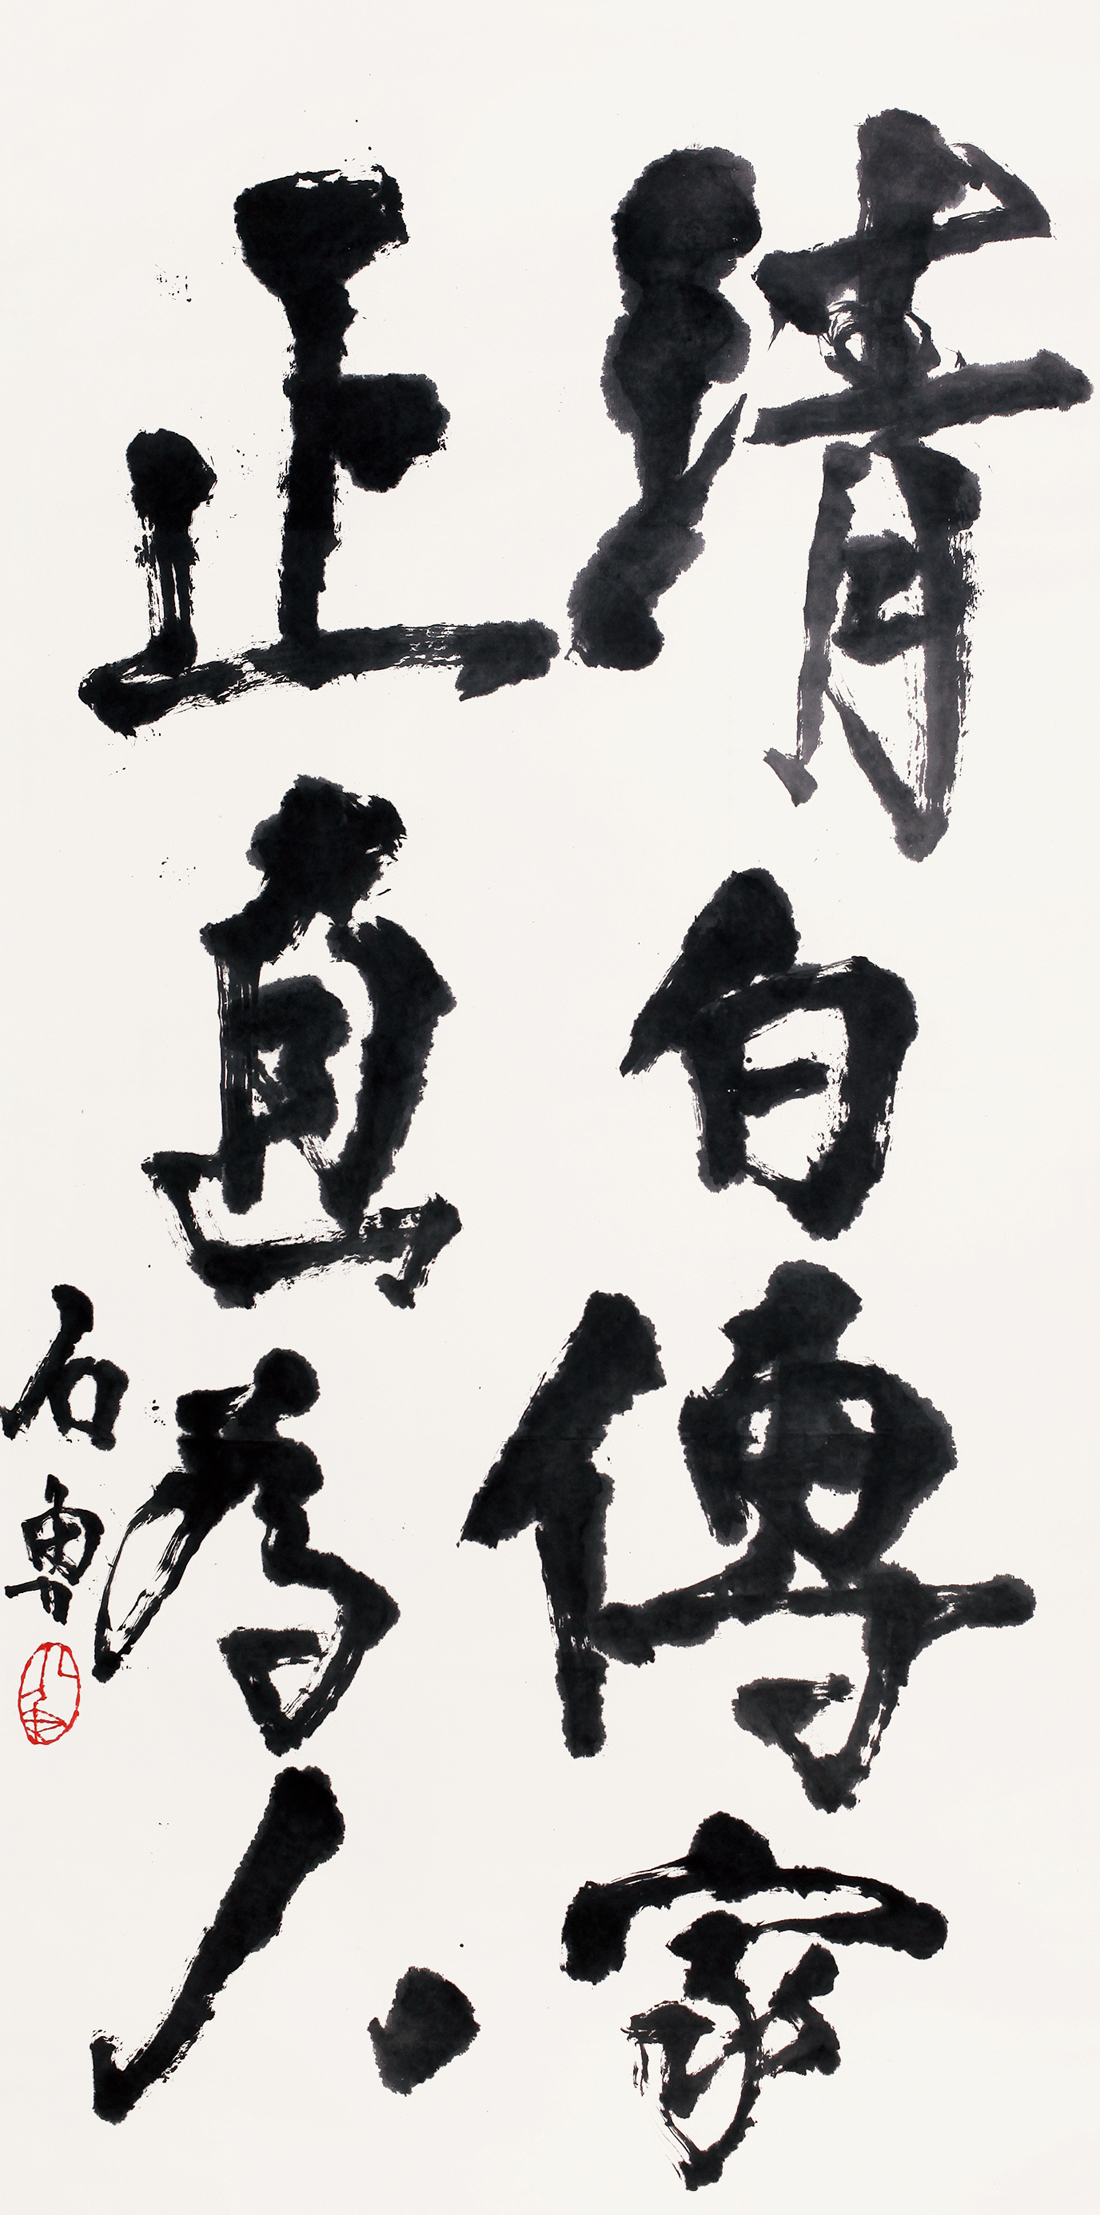 清白傳家
正直為人
石專